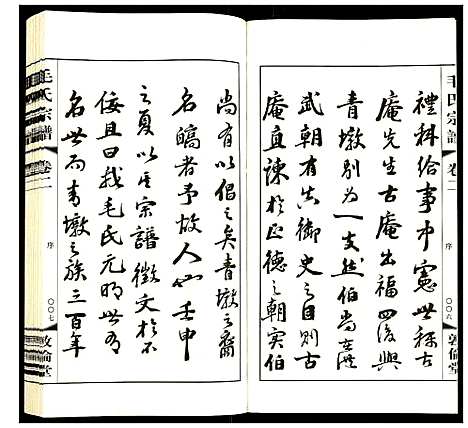 毛氏宗譜 卷二
序
〇〇六
敦倫堂
禮科給事中憲世稱古
庵先生古庵出福四後與
青墩別为一支然伯尚在洪
武朝有真御史之目則古
庵直諫於正德之朝实伯
尚有以倡之矣青墩之裔
名皜者予故人也壬申
之夏以其宗譜徵文於不
佞且曰我毛氏元明世有
名世而青墩之族三百年
毛氏宗譜 卷二
序
〇〇七
敦倫堂